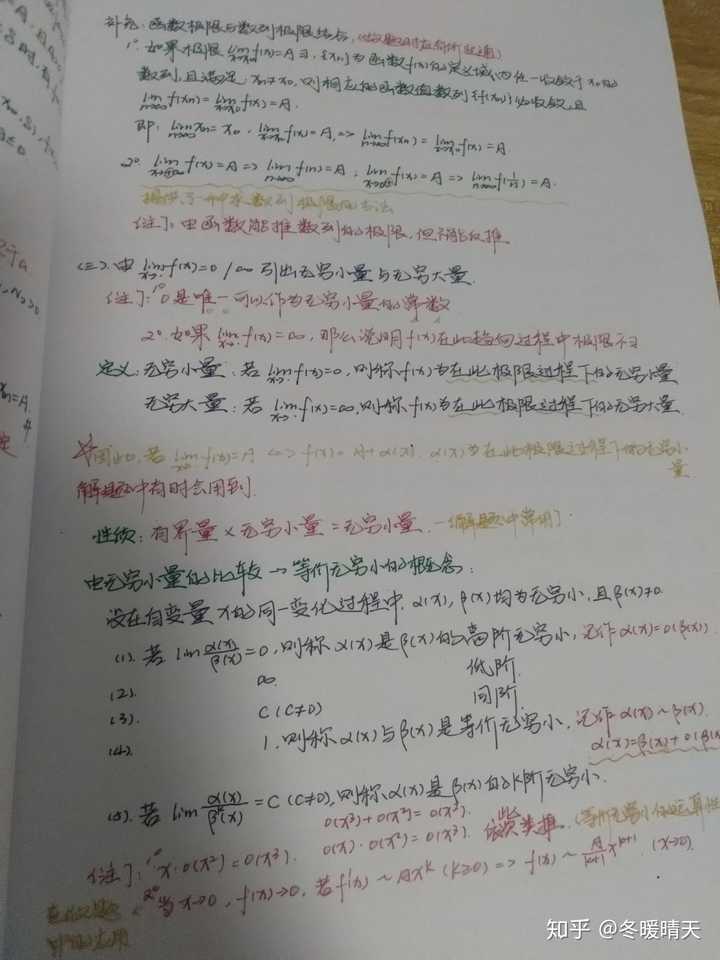 补充：函数极限与数列极限结合
1° 如果极限 lim f(x)=A ∃，{xn}为函数f(x)的定义域内任一收敛于x0的
数列，且满足：xn≠x0，则相应的函数值数列{f(xn)}必收敛，且
lim_{n→∞} f(xn) = lim_{x→x0} f(x) = A.
即：lim_{n→∞} xn = x0，lim_{x→x0} f(x)=A，=> lim_{n→∞} f(xn) = lim_{x→x0} f(x) = A
2° lim f(x)=A => lim_{n→∞} f(n)=A；lim f(x)=A => lim_{n→∞} f(1/n)=A.
提供了一种求数列极限的方法
(注)：由函数能推数列的极限，但不能反推
(三). 由 lim f(x)=0/∞ 引出无穷小量与无穷大量.
(注)：1° 0是唯一可以作为无穷小量的常数
2° 如果 lim f(x)=∞，那么说明f(x)在此趋向过程中极限不∃
定义：无穷小量：若 lim f(x)=0，则称f(x)为在此极限过程下的无穷小量
无穷大量：若 lim f(x)=∞，则称f(x)为在此极限过程下的无穷大量
因此，若 lim f(x)=A <=> f(x)=A+α(x)，α(x)为在此极限过程下的无穷小
量
解题中有时会用到.
性质：有界量×无穷小量=无穷小量.—(解题中常用)
由无穷小量的比较→等价无穷小的概念：
设在自变量x的同一变化过程中，α(x)，β(x)均为无穷小，且β(x)≠0
(1). 若 lim α(x)/β(x) = 0，则称α(x)是β(x)的高阶无穷小，记作α(x)=o(β(x))
(2). ∞ 低阶.
(3). C (C≠0) 同阶
(4). 1，则称α(x)与β(x)是等价无穷小，记作α(x)~β(x).
α(x)=β(x)+o(β(x
(5). 若 lim α(x)/β^k(x) = C (C≠0)，则称α(x)是β(x)的k阶无穷小.
o(x³)+o(x²)=o(x²).
(注)：1° x·o(x²)=o(x³). o(x)·o(x²)=o(x³). 依此类推. (等价无穷小的运算性
2° 当x→0，f(x)→0，若f'(x)~Ax^k (k≥0) => f(x)~A/(k+1) x^{k+1}. (x→0)
知乎 @冬暖晴天